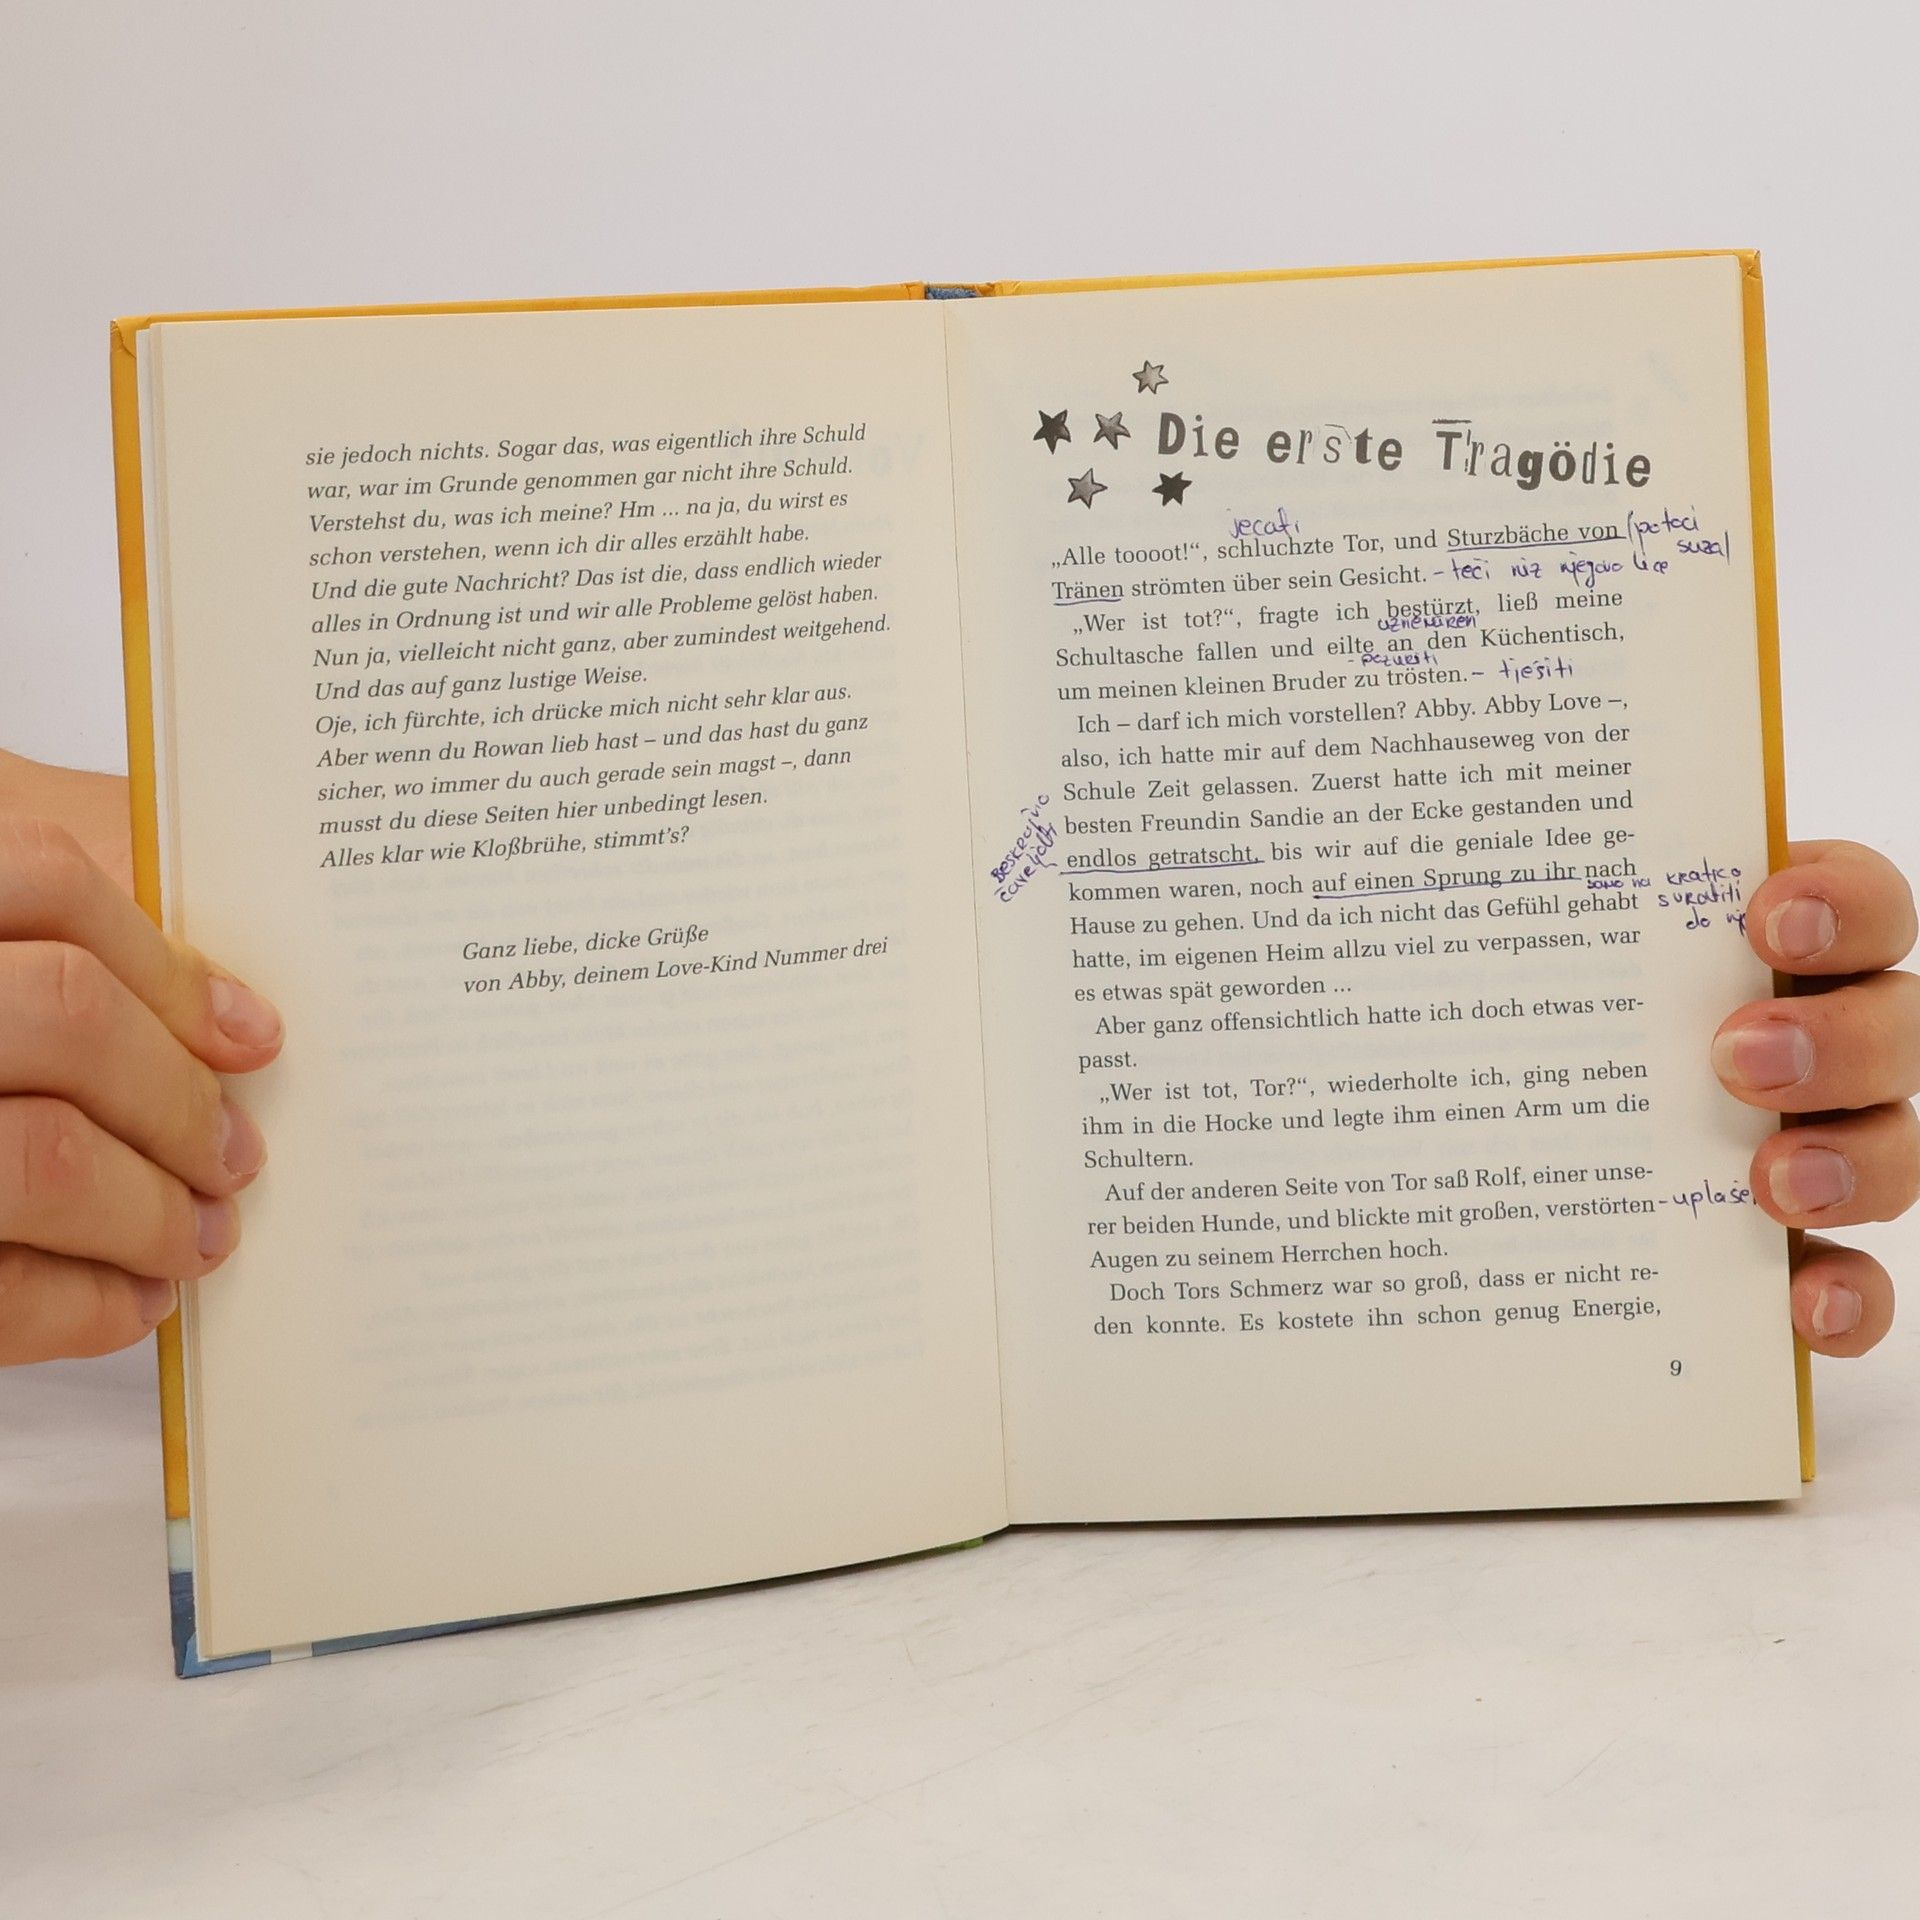 sie jedoch nichts. Sogar das, was eigentlich ihre Schuld
war, war im Grunde genommen gar nicht ihre Schuld.
Verstehst du, was ich meine? Hm ... na ja, du wirst es
schon verstehen, wenn ich dir alles erzählt habe.
Und die gute Nachricht? Das ist die, dass endlich wieder
alles in Ordnung ist und wir alle Probleme gelöst haben.
Nun ja, vielleicht nicht ganz, aber zumindest weitgehend.
Und das auf ganz lustige Weise.
Oje, ich fürchte, ich drücke mich nicht sehr klar aus.
Aber wenn du Rowan lieb hast – und das hast du ganz
sicher, wo immer du auch gerade sein magst –, dann
musst du diese Seiten hier unbedingt lesen.
Alles klar wie Kloßbrühe, stimmt's?
Ganz liebe, dicke Grüße
von Abby, deinem Love-Kind Nummer drei
Die erste Tragödie
jecati
„Alle toooot!“, schluchzte Tor, und Sturzbäche von (potoci
suza)
Tränen strömten über sein Gesicht. - teći niz njegovo lice
„Wer ist tot?“, fragte ich bestürzt, ließ meine
uznemiren
Schultasche fallen und eilte an den Küchentisch,
- pozuriti
um meinen kleinen Bruder zu trösten. - tješiti
Ich – darf ich mich vorstellen? Abby. Abby Love –,
also, ich hatte mir auf dem Nachhauseweg von der
Schule Zeit gelassen. Zuerst hatte ich mit meiner
besten Freundin Sandie an der Ecke gestanden und
Beskrajno
endlos getratscht, bis wir auf die geniale Idee ge-
kommen waren, noch auf einen Sprung zu ihr nach
samo na kratko
svratiti
do
Hause zu gehen. Und da ich nicht das Gefühl gehabt
hatte, im eigenen Heim allzu viel zu verpassen, war
es etwas spät geworden ...
Aber ganz offensichtlich hatte ich doch etwas ver-
passt.
„Wer ist tot, Tor?“, wiederholte ich, ging neben
ihm in die Hocke und legte ihm einen Arm um die
Schultern.
Auf der anderen Seite von Tor saß Rolf, einer unse-
rer beiden Hunde, und blickte mit großen, verstörten - uplaše
Augen zu seinem Herrchen hoch.
Doch Tors Schmerz war so groß, dass er nicht re-
den konnte. Es kostete ihn schon genug Energie,
9